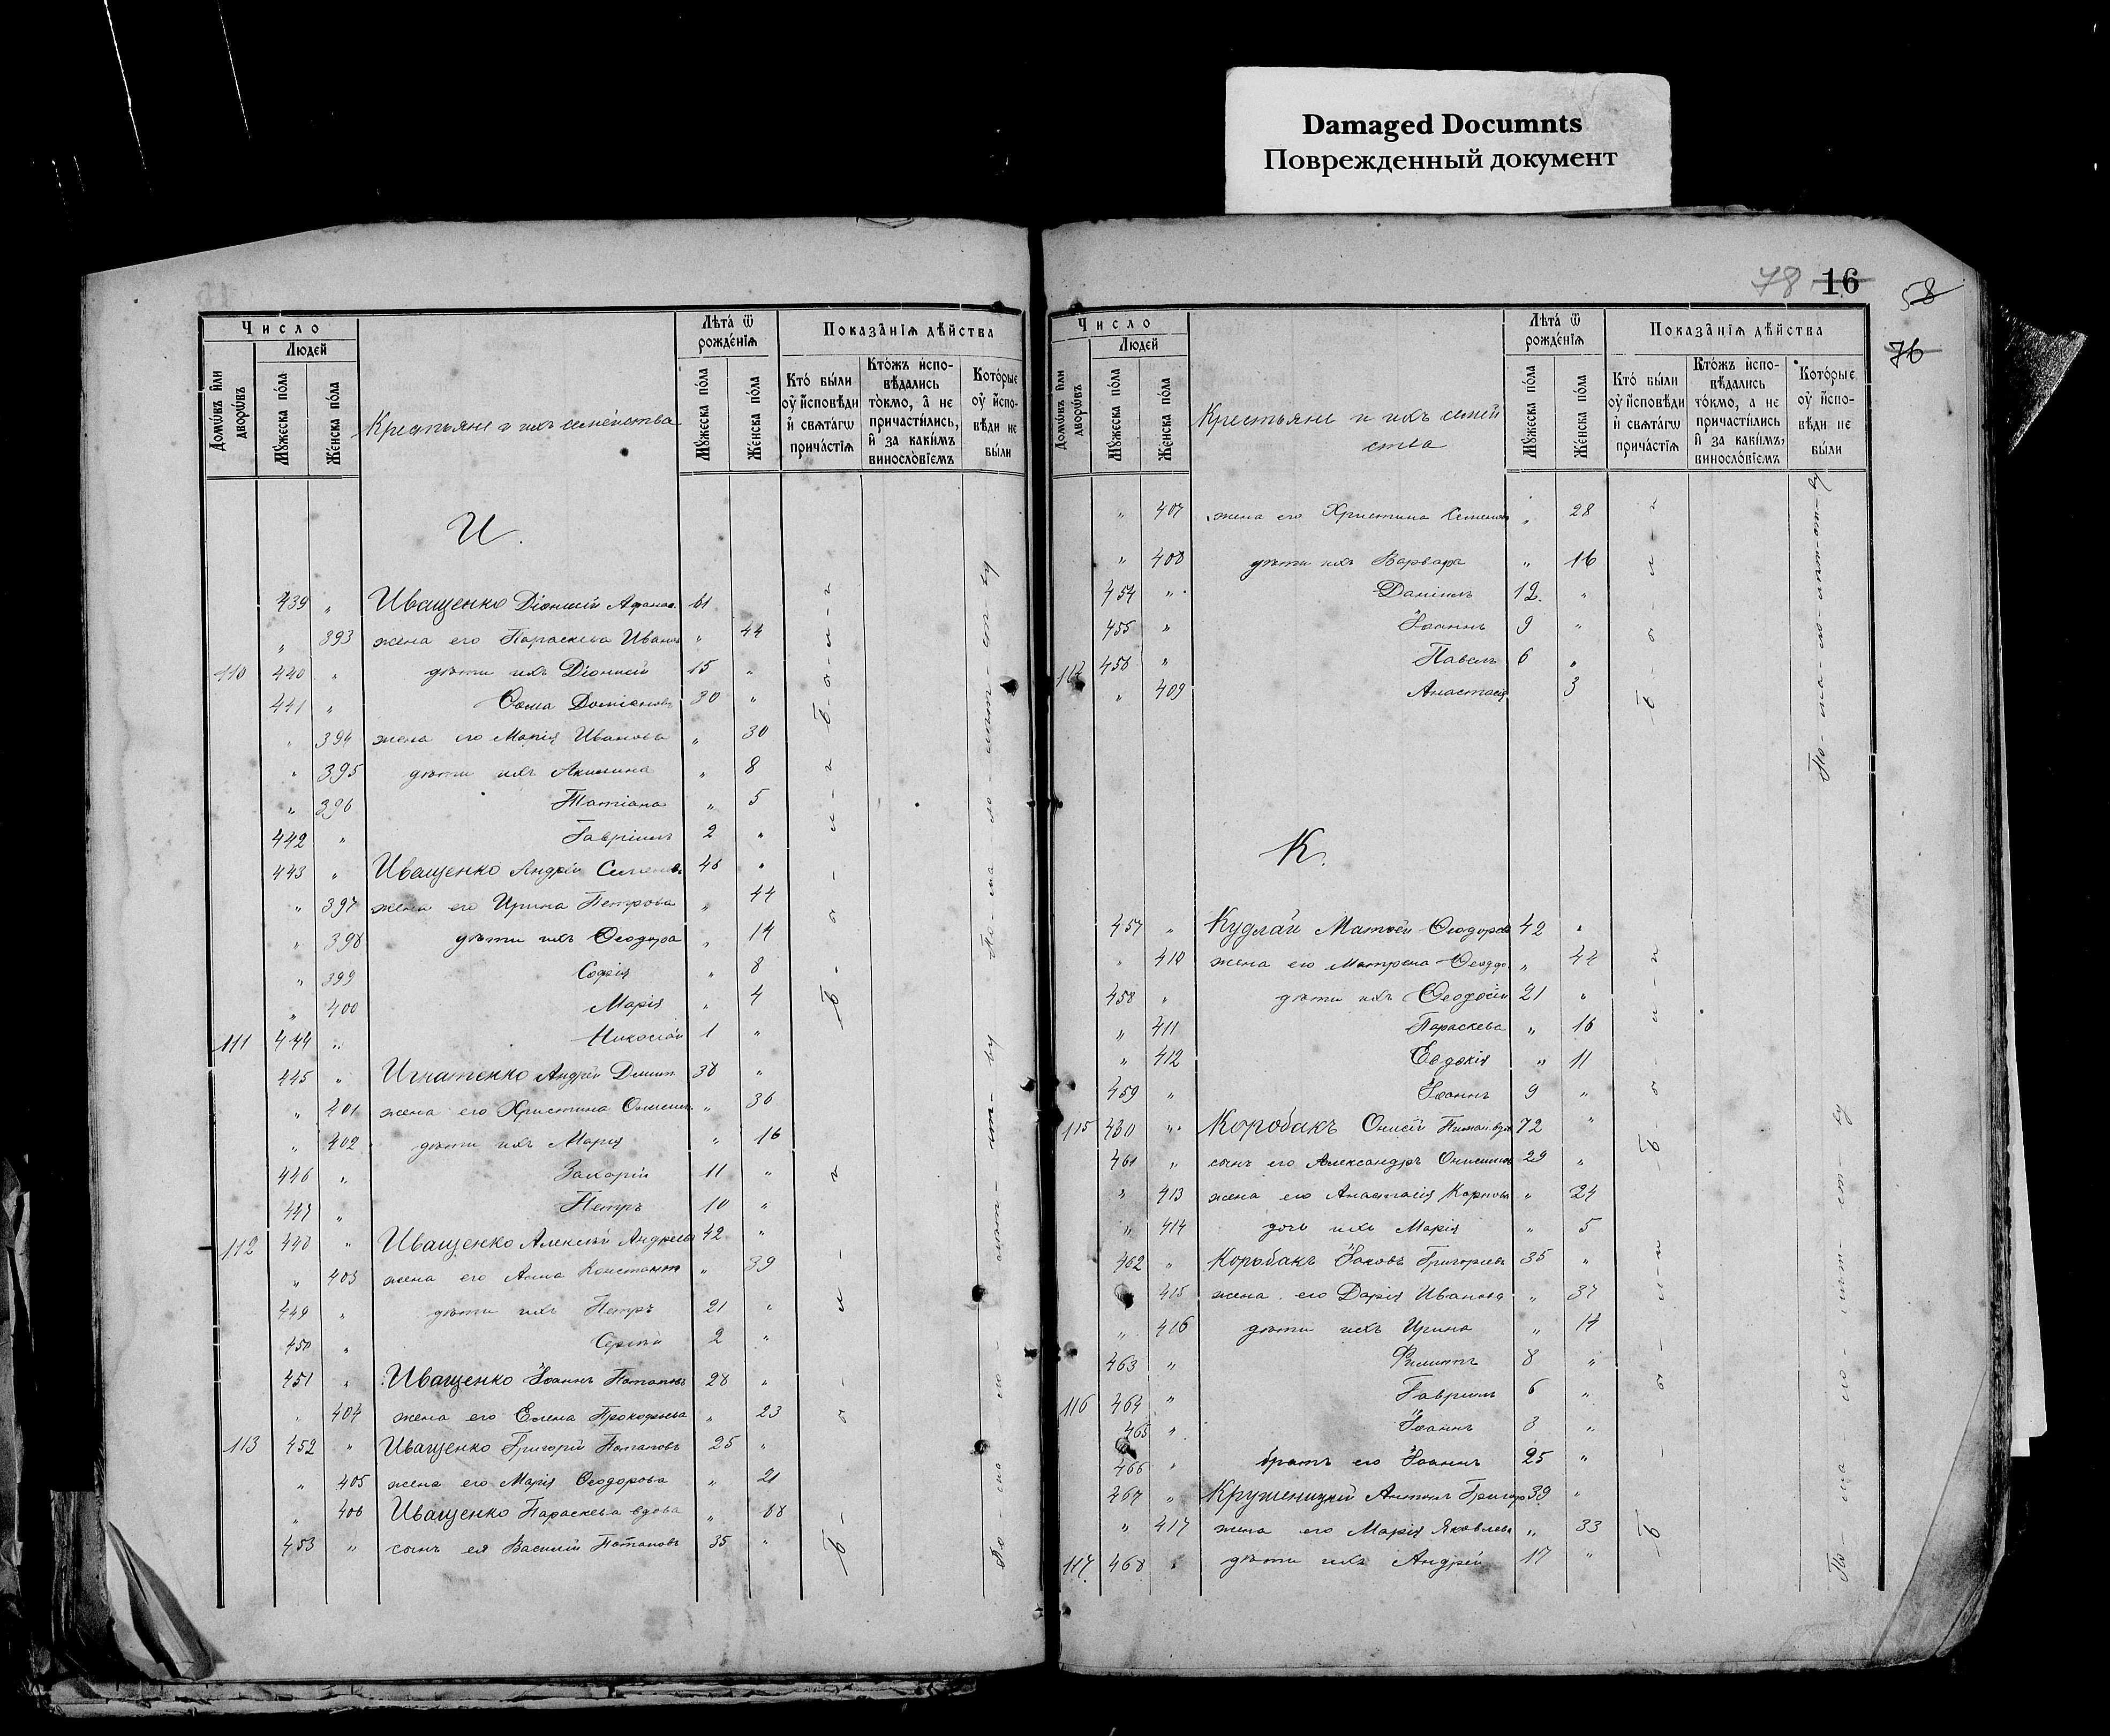 Damaged Documnts
Поврежденный документ
78 16
58
76
Число
Людей
Домѡвъ и҆лѝ дворѡвъ
Мꙋ́жеска по́ла
Же́нска по́ла
Крестьяне и ихъ семейства
Лѣта̀ ѿ рожде́нїѧ
Мꙋ́жеска по́ла
Же́нска по́ла
Показа̑нїѧ дѣ́йства
Кто̀ бы́ли оу҆ и҆сповѣди и҆ свѧта́гѡ прича́стїѧ
Кто́жъ и҆спо-вѣ́дались то́кмо, а҆ не причасти́лись, и҆ за каки́мъ винослові́емъ
Кото́рые оу҆ и҆спо-вѣди не бы́ли
И.
439 " Иващенко Діонисій Афанас. 61
" 393 жена его Параскева Иванов " 44
110 440 " дѣти ихъ Діонисій 15 "
441 " Ѳома 30 "
" 394 жена его Марія Иванова " 30
" 395 дѣти ихъ Акилина " 8
" 396 Татіана " 5
442 " Гавріилъ 2 "
443 " Иващенко Андрей Семенов "
" 397 жена его Ирина Петрова " 44
" 398 дѣти ихъ Ѳеодора " 14
" 399 Софія " 8
" 400 Марія " 4
111 444 " Николай 1 "
445 " Игнатенко Андрей Димит 38 "
" 401 жена его Христина Онисим " 36
" 402 дѣти ихъ Марія " 16
446 " Захарій 11 "
447 " Петръ 10 "
112 448 " Иващенко Алексѣй Андреев 42 "
" 403 жена его Анна Константин " 39
449 " дѣти ихъ Петръ 21 "
450 " Сергѣй 2 "
451 " Иващенко Іоаннъ Потаповъ 28 "
" 404 жена его Елена Прокофьева " 23
113 452 " Иващенко Григорій Потаповъ 25 "
" 405 жена его Марія Ѳеодорова " 21
" 406 Иващенко Параскева вдова " 68
453 " сынъ ея Василій Потаповъ 35 "
Число
Людей
Домѡвъ и҆лѝ дворѡвъ
Мꙋ́жеска по́ла
Же́нска по́ла
Крестьяне и ихъ семей
ства
Лѣта̀ ѿ рожде́нїѧ
Мꙋ́жеска по́ла
Же́нска по́ла
Показа̑нїѧ дѣ́йства
Кто̀ бы́ли оу҆ и҆сповѣди и҆ свѧта́гѡ прича́стїѧ
Кто́жъ и҆спо-вѣ́дались то́кмо, а҆ не причасти́лись и҆ за каки́мъ, винослові́емъ
Кото́рые оу҆ и҆спо-вѣди не бы́ли
" 407 жена его Христина Семенов " 28
" 408 дѣти ихъ Варвара " 16
454 " Даніилъ 12 "
455 " Іоаннъ 9 "
456 " Павелъ 6 "
" 409 Анастасія 3
К.
457 " Кудлай Матѳей Ѳеодоров 42 "
" 410 жена его Матрена Ѳеодор. " 44
458 " дѣти ихъ Ѳеодосій 21 "
" 411 Параскева " 16
" 412 Евдокія " 11
459 " Іоаннъ 9 "
115 " Коробакъ Онисій 72 "
461 " сынъ его Александръ Онисимов 29 "
" 413 жена его Анастасія Карпова " 24
" 414 дочь ихъ Марія " 5
462 " Коробакъ Іаковъ Григорьевъ 35 "
415 жена его Дарія Иванова " 37
" 416 дѣти ихъ Ирина " 14
463 " Филиппъ 8 "
116 464 " Гавріилъ 6 "
465 " Іоаннъ 3 "
466 " братъ его Іоаннъ 25 "
467 " Антонъ Григор 39 "
" 417 жена его Марія Яковлева " 33
117 468 " дѣти ихъ Андрей 17 "